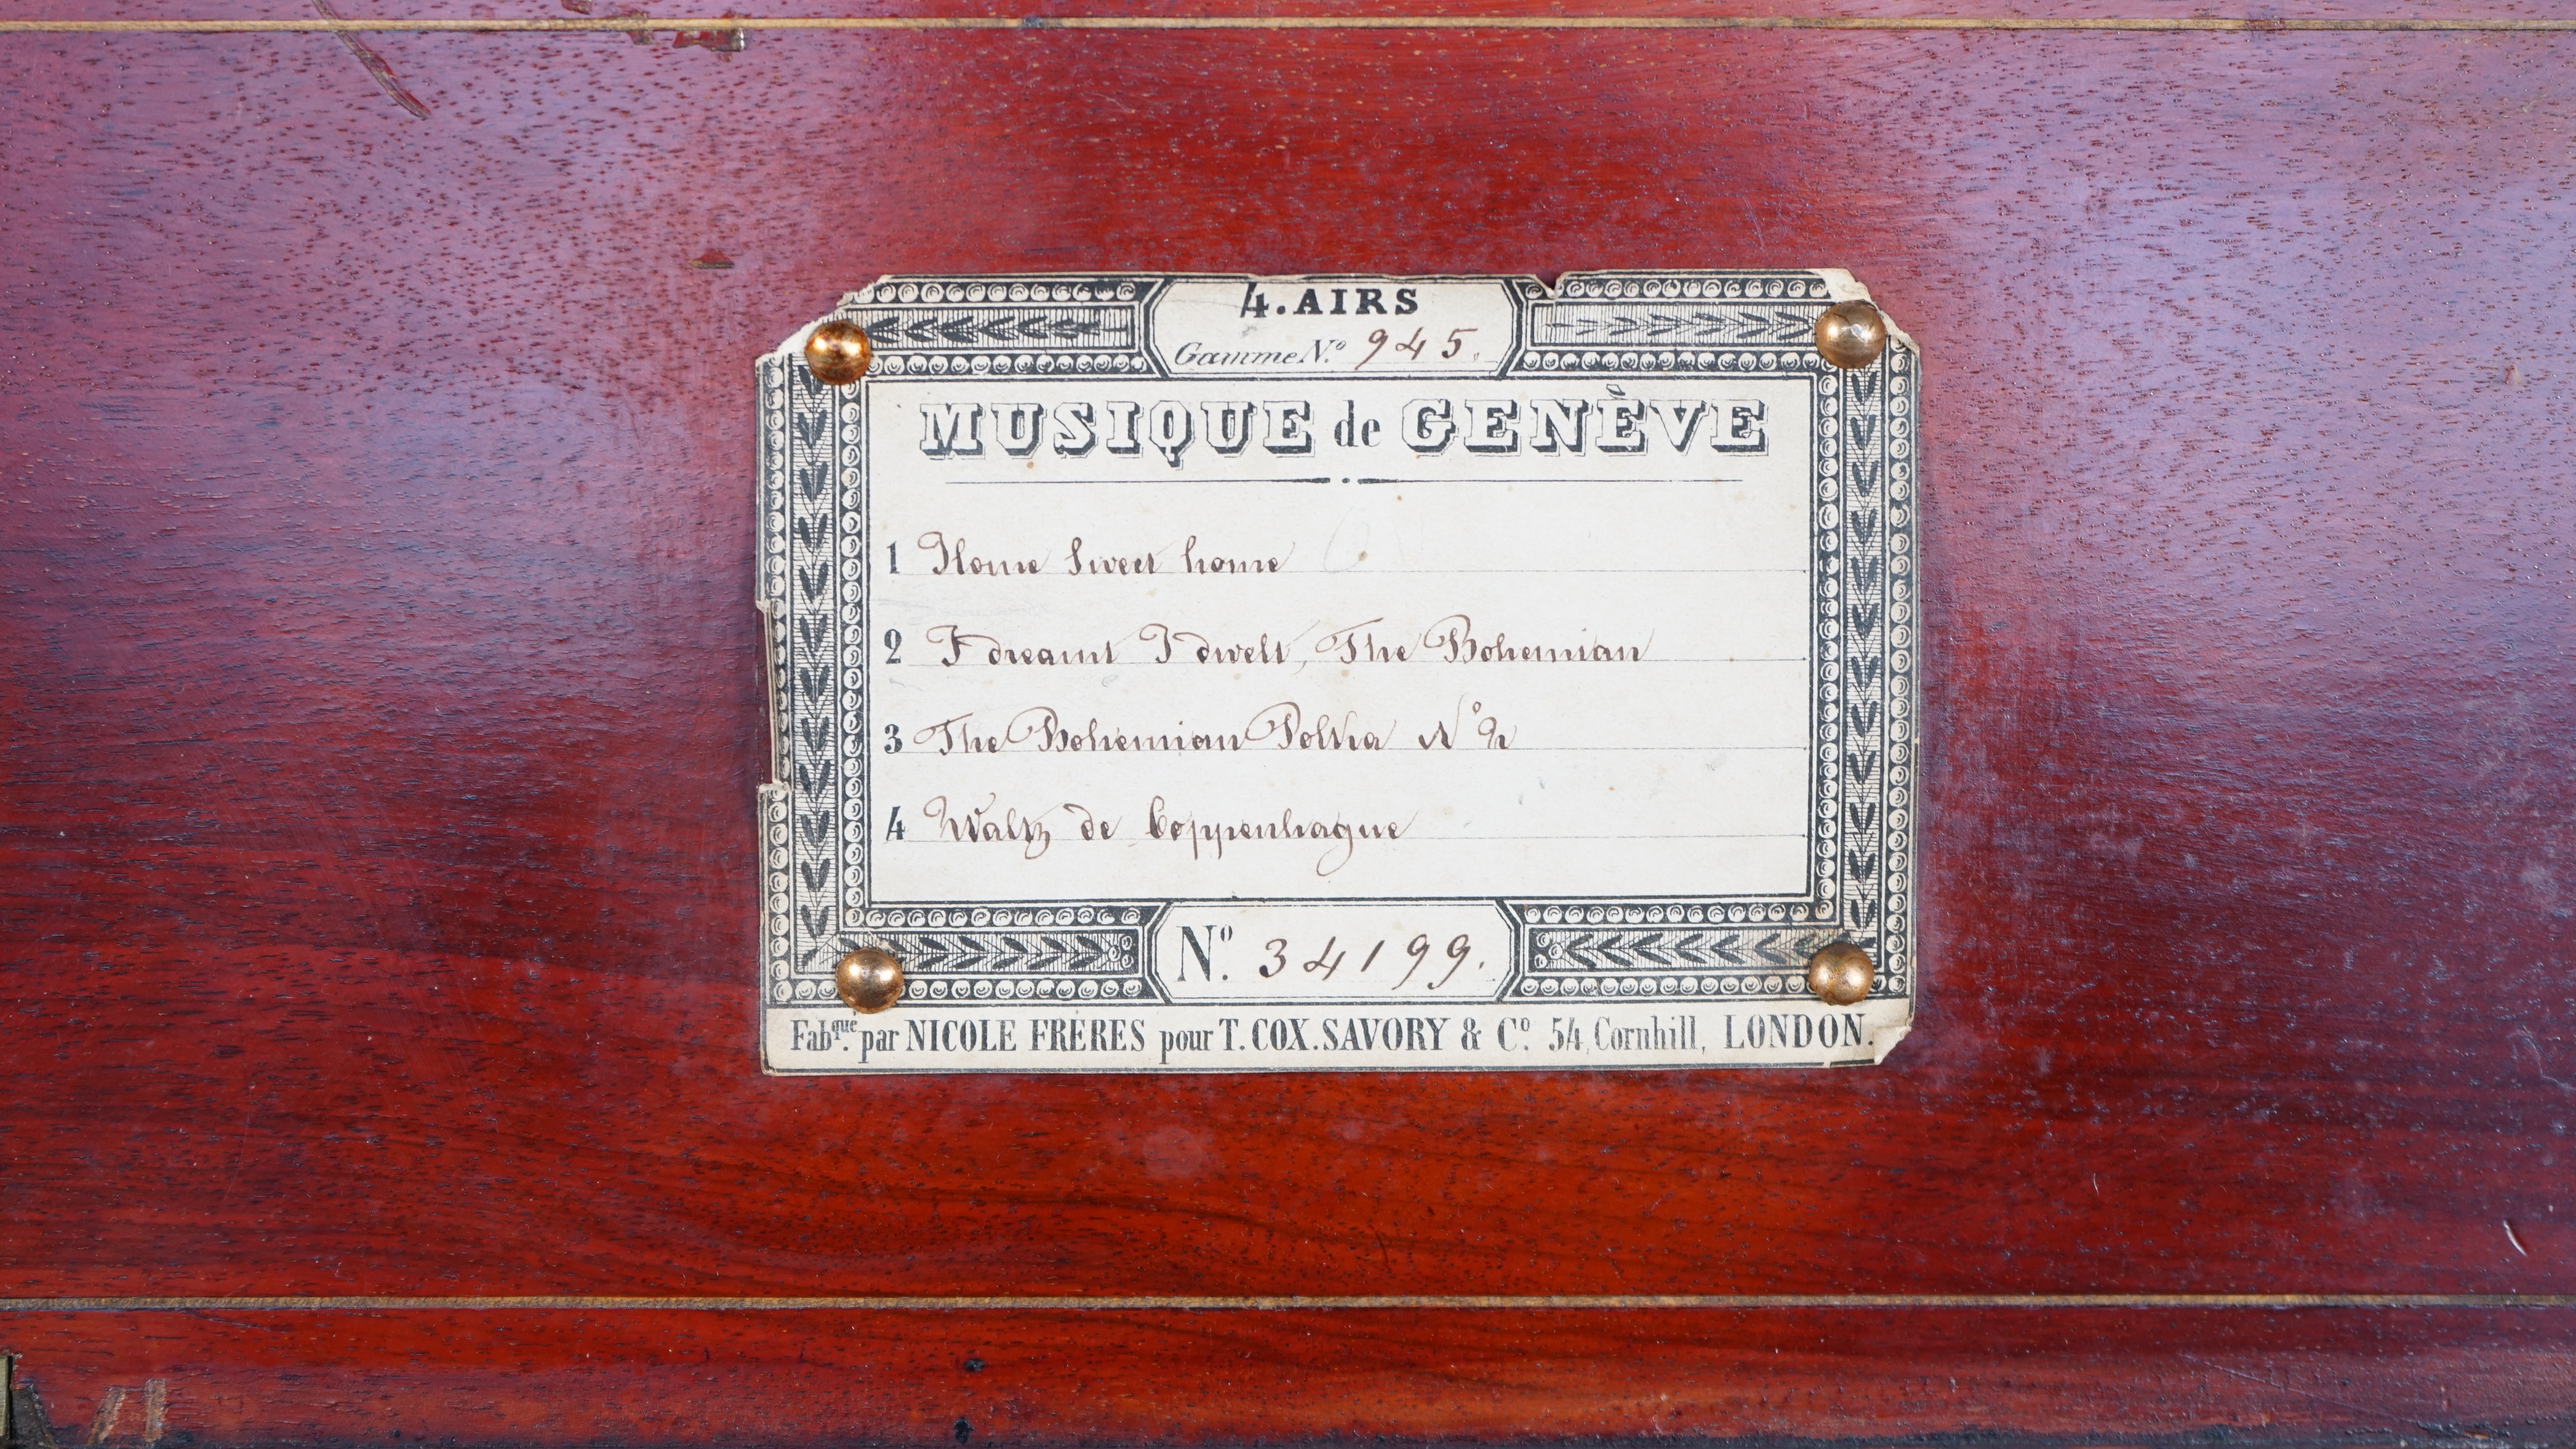 4. AIRS
Gamme N.º 945.
MUSIQUE de GENÈVE
1 Home Sweet home
2 I dreamt I dwelt, The Bohemian
3 The Bohemian Polka Nº 2
4 Waltz de Coppenhague
Nº. 34199.
Fabque. par NICOLE FRERES pour T. COX. SAVORY & Cº. 54, Cornhill, LONDON.